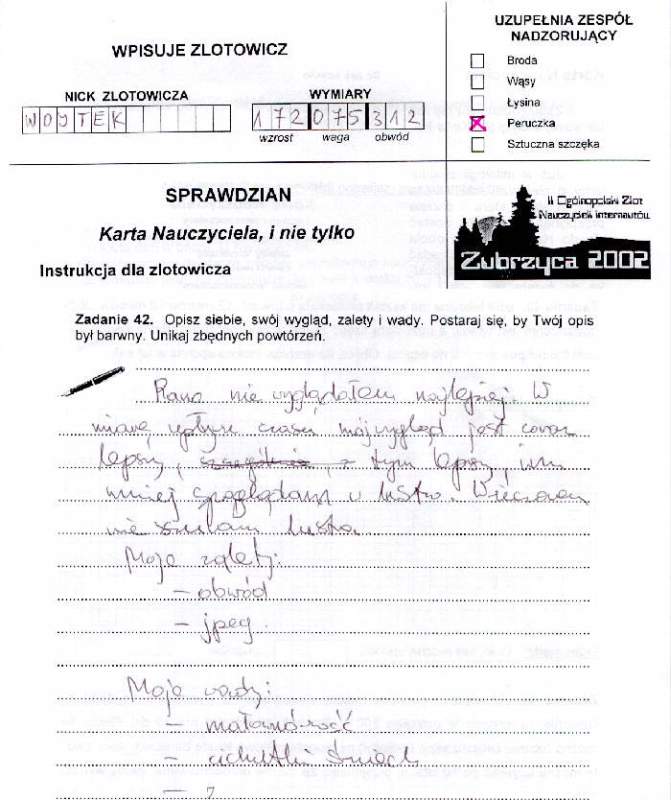 WPISUJE ZLOTOWICZ
NICK ZLOTOWICZA
WOJTEK
WYMIARY
172 075 312
wzrost waga obwód
UZUPEŁNIA ZESPÓŁ
NADZORUJĄCY
Broda
Wąsy
Łysina
Peruczka
Sztuczna szczęka
SPRAWDZIAN
Karta Nauczyciela, i nie tylko
Instrukcja dla zlotowicza
II Ogólnopolski Zlot
Nauczycieli Internautów
Zubrzyca 2002
Zadanie 42. Opisz siebie, swój wygląd, zalety i wady. Postaraj się, by Twój opis
był barwny. Unikaj zbędnych powtórzeń.
Rano nie wyglądałem najlepiej. W
miarę upływu czasu mój wygląd jest coraz
lepszy, tym lepszy, im
mniej spoglądam w lustro. Wieczorem
nie szukam lustra.
Moje zalety:
- obwód
- jpeg.
Moje wady:
- małomówność
- śmiech
- ?